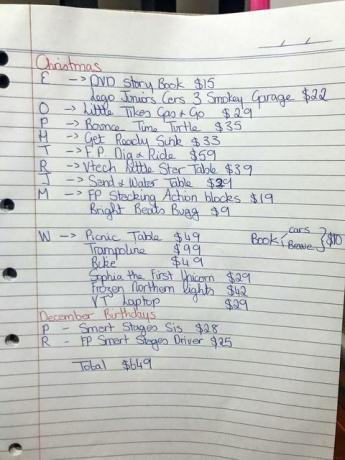 Christmas
E -> DVD Story Book $15
Lego Juniors Cars 3 Smokey Garage $22
O -> Little Tikes Gas & Go $29
P -> Bounce Time Turtle $35
H -> Get Ready Sink $33
T -> F.P Dig & Ride $59
R -> Vtech Kittle Star Table $39
J -> Sand & Water Table $29
M -> FP Stacking Action blocks $19
Bright Beats Bugg $9
W -> Picnic Table $49 Book { Cars Brave } $10
Trampoline $99
Bike $49
Sophia the First Unicorn $29
Frozen Northern Lights $42
VT Laptop $29
December Birthdays
P - Smart Stages Sis $28
R - FP Smart Stages Driver $25
Total $649